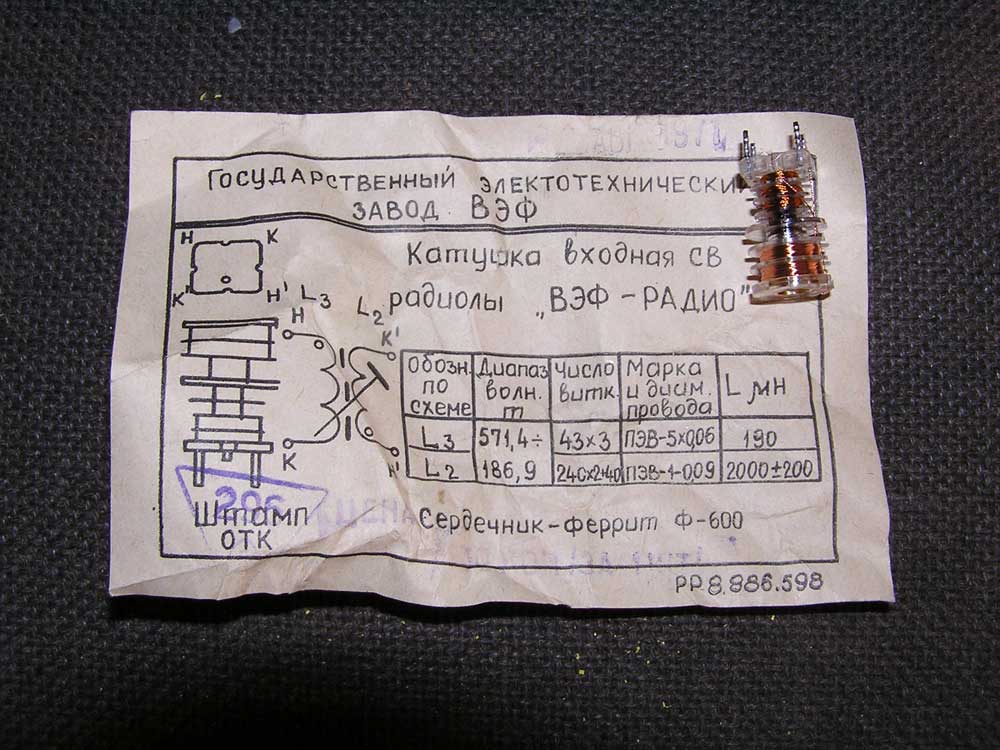 ГОСУДАРСТВЕННЫЙ ЭЛЕКТОТЕХНИЧЕСКИ
ЗАВОД ВЭФ
Катушка входная СВ
радиолы „ВЭФ-РАДИО"
Н К
К' Н'
L3 L2
Н К'
К Н'
Обозн. по схеме Диапаз. волн. m Число витк. Марка и диам. провода L мн
L3 571,4÷ 43х3 ПЭВ-5х0,06 190
L2 186,9 240х2+40 ПЭВ-1-0,09 2000±200
206
Штамп
ОТК
ЦЕНА
Сердечник-феррит Ф-600
РР.8.886.598